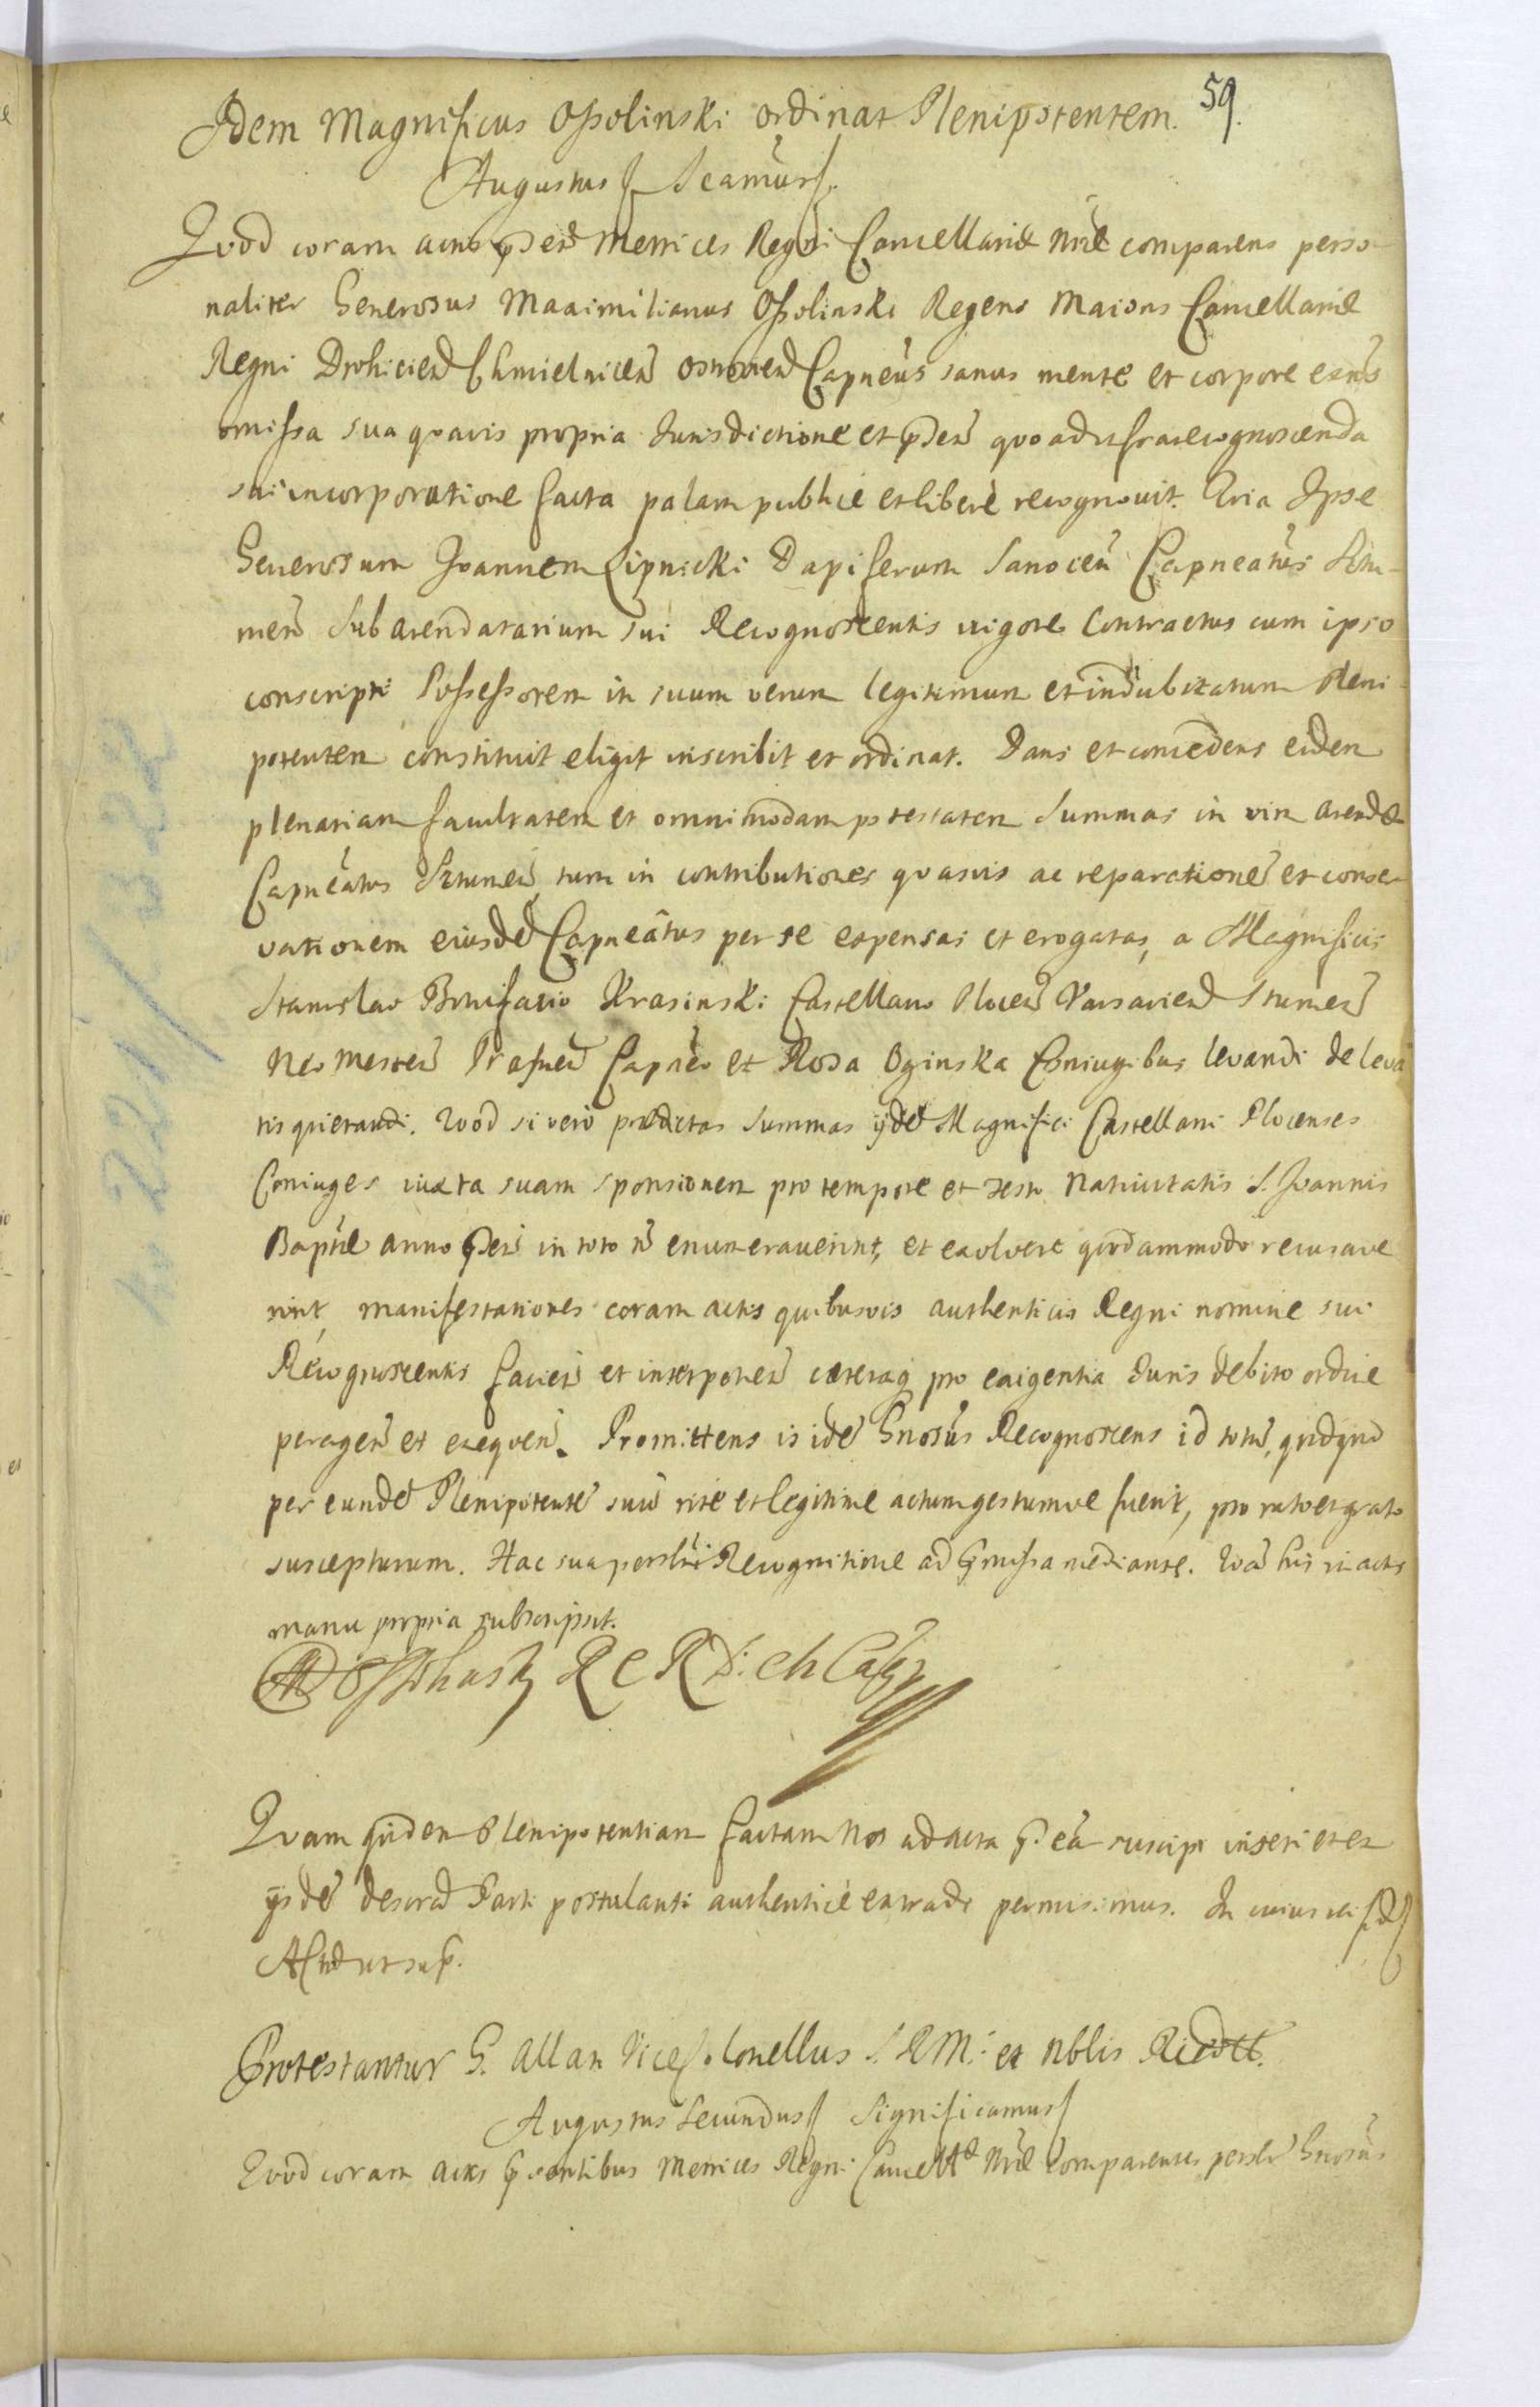 59.
Idem Magnificus Ossolinski ordinat Plenipotentem.
Augustus Scamus
Quod coram actis pñtd Metrices Regni Cancellariæ Nræ comparens perso-
naliter Generosus Maximilianus Ossolinski Regens Maioris Cancellariæ
Regni Drohicien Chmielnicen Ostroven Capneus sanus mente et corpore exns
omissa sua quavis propria Jurisdictione et pden quoad infra recognoscenda
sui incorporatione facta palam publice et libere recognovit. Quia Ipse
Generosum Joannem Lipnicki Dapiferum Sanocen Capneatus Stu-
men Subarendatarium sui Recognoscentis vigore Contractus cum ipso
conscripti Possessorem in suum verum legitimum et indubitatum Pleni-
potentem constituit eligit inscribit et ordinat. Dans et concedens eidem
plenariam facultatem et omnimodam potestatem Summas in vim arendæ
Capneatus Sztumen tum in contributiones quasvis ac reparatione et conser-
vationem eiusde Capneatus per se expensas et erogatas, a Magnificis
Stanislao Bonifacio Krasinski Castellano Plocen Varsavien Stumen
Neo Mesten Prasnen Capneo et Rosa Oginska Coniugibus levandi de leva
tis quietandi. Quod si vero prædictas Summas ijde Magnifici Castellani Plocenses
Coniuges iuxta suam sponsionem pro tempore et Festo Nativitatis S. Joannis
Baptæ anno pden in toto n enumeraverint, et exolvere quodammodo recusave
rint, manifestationes coram actis quibusvis authenticis Regni nomine sui
Recognoscentis facien et interponen cæteraq pro exigentia Juris debito ordine
peragen et exequen. Promittens is ide Gnosus Recognoscens id totu, quidquid
per eunde Plenipotente suu rite et legitime actum gestumve fuerit, pro rato et grato
suscepturum. Hac sua persli Recognitione ad pmissa mediante. Qua his in actis
manu propria subscripsit.
M Ossolinsky R C R D: Ch Cap
Quam quidem Plenipotentiam factam Nos ad acta p. ea suscipi inseri et ex
ijsde descrd Parti postulanti authentice extradi permisimus. In cuius rei fd
Act Dat ut sup.
Protestantur G. Allan Vice Colonellus S. R. M: et Nblis Ricott.
Augustus Secundus Significamus
Quod coram actis psentibus Metrices Regni Cancellæ Nræ Comparentes persle Gnosus